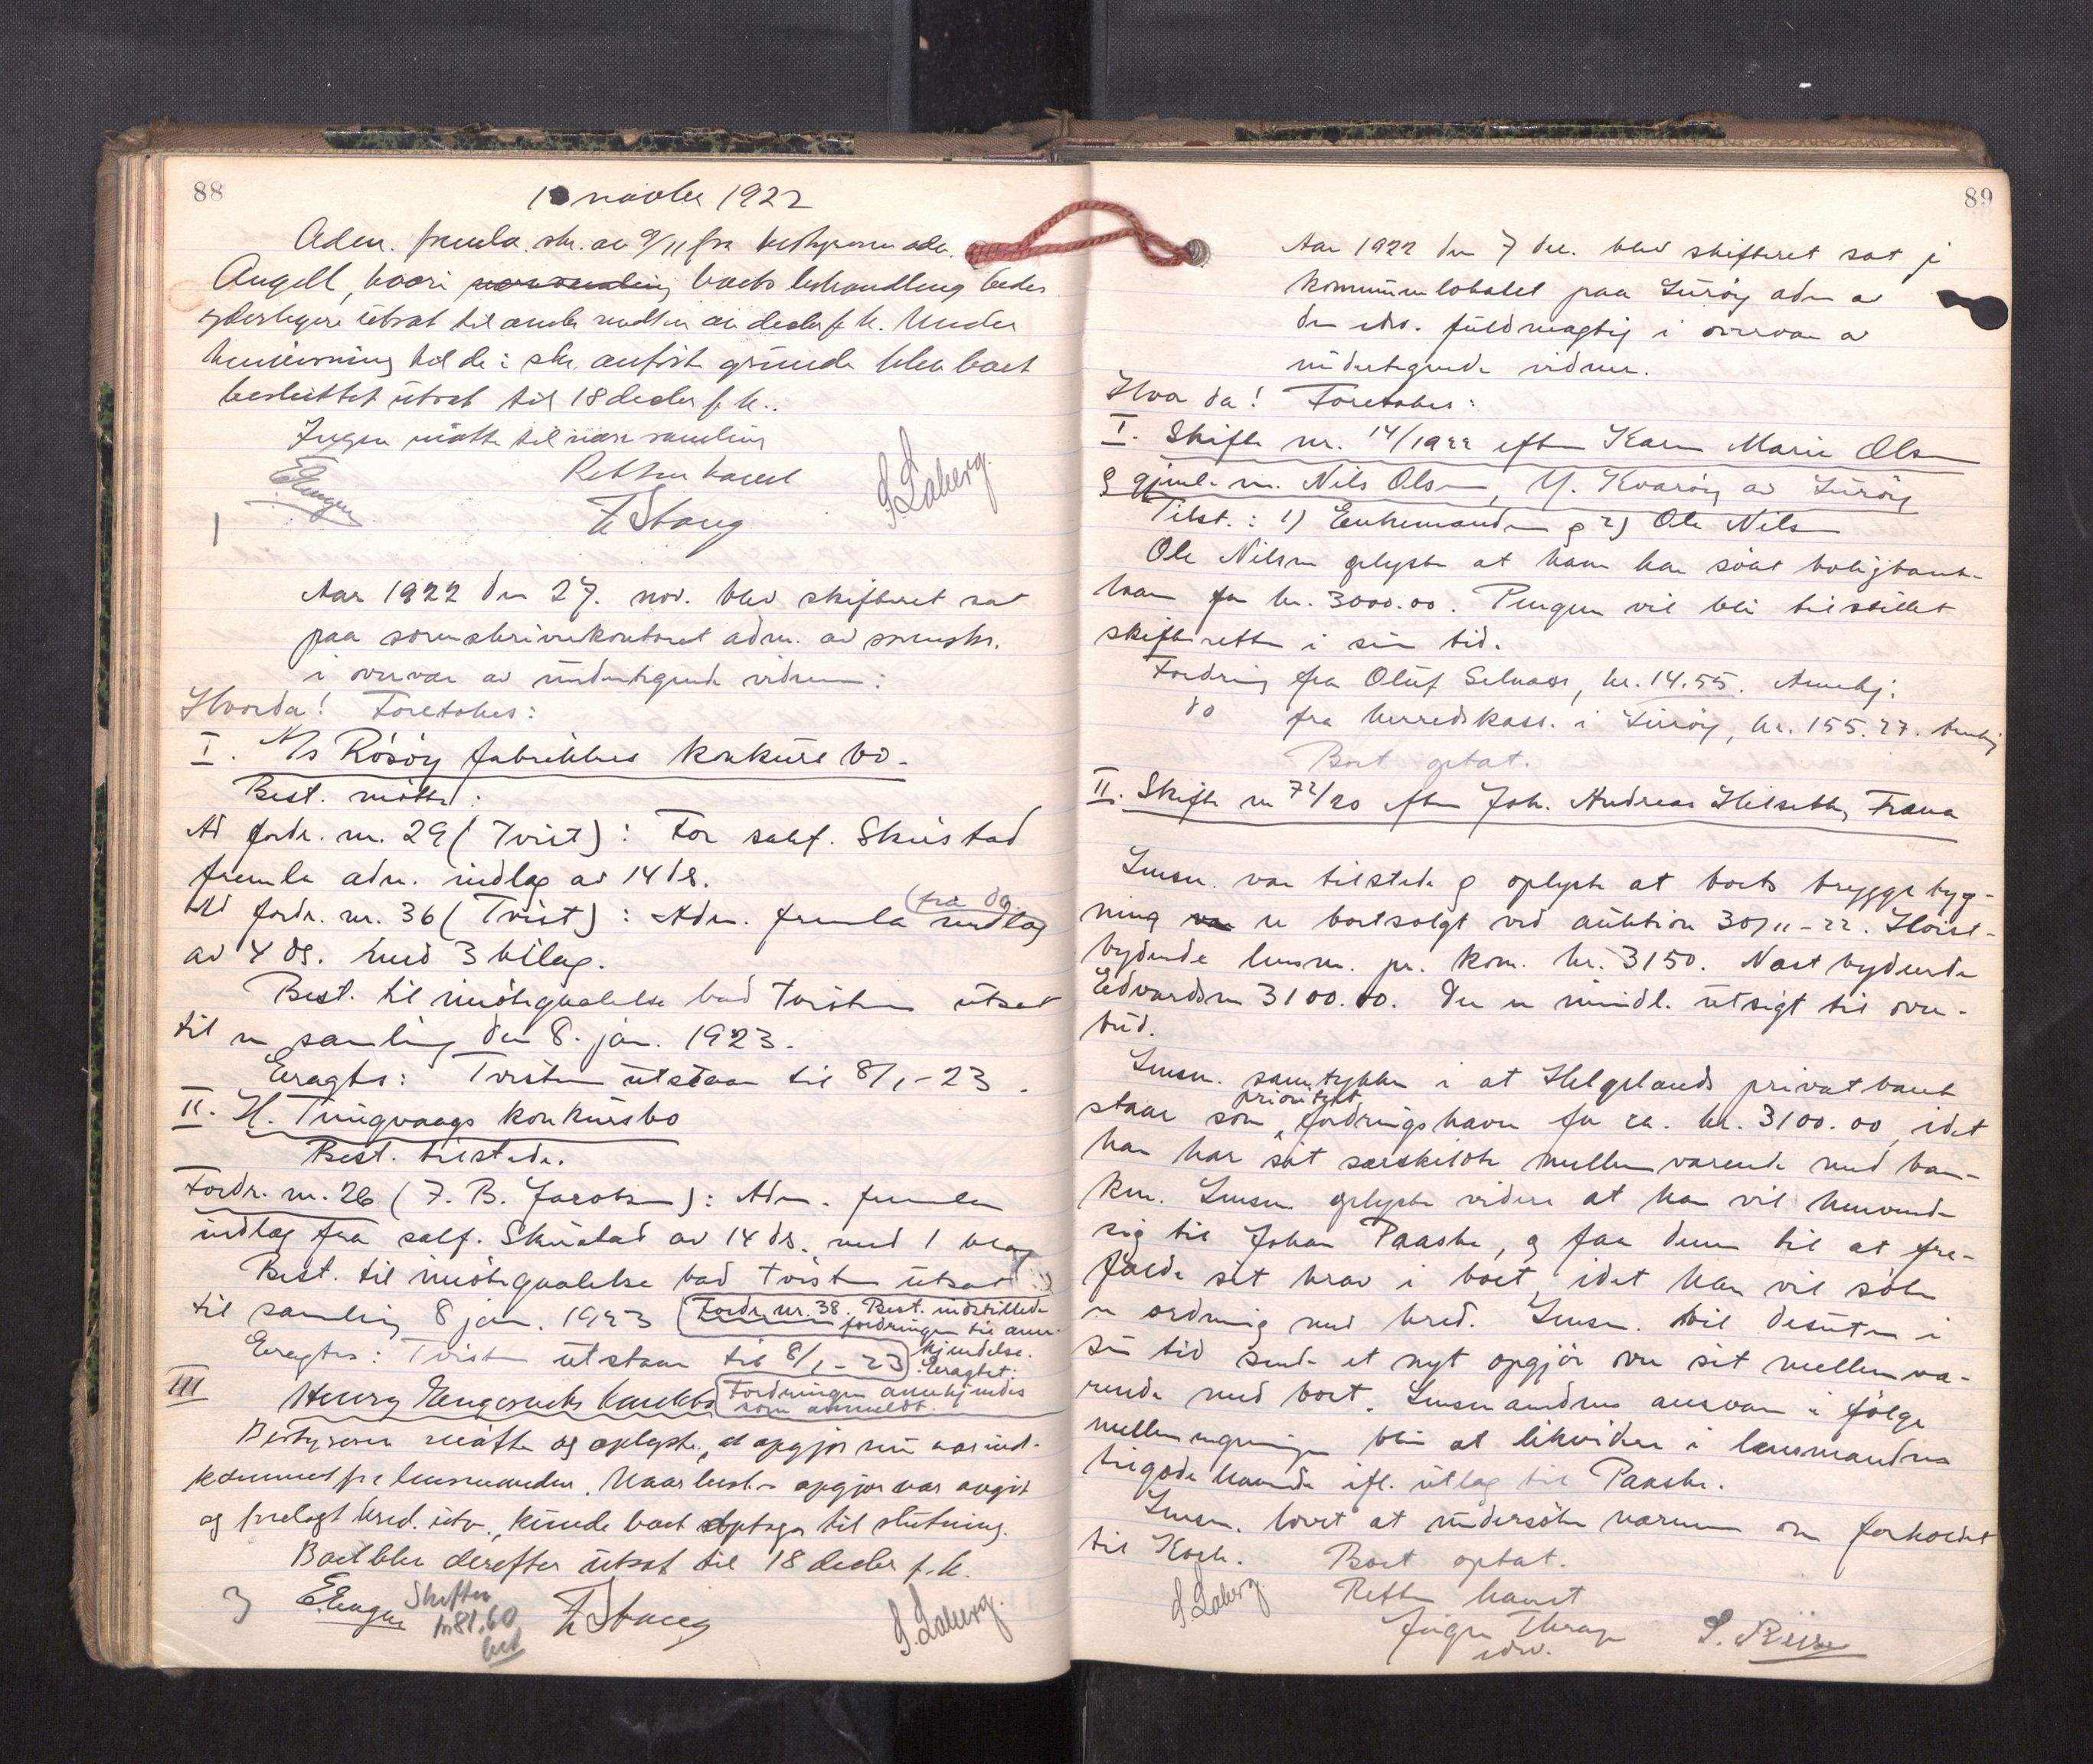 88
1922
Adm. fremla. skr. av 9/11 fra bestyreren adv.
Angell, hvori boets behandling bedes
yderligere utsat til midten av decbr f. k. Under
henvisning til de i skr. anførte grunde blev boet
besluttet utsat til 18 decbr f. k..
Ingen møtte til nær samling
Retten hævet
S. Laberg.
Aar 1922 den 27. nov. blev skifteret sat
paa sorenskriverkontoret adm. av sorenskr.
i overvær av undertegnede vidner:
Hvorda! Foretokes:
I. A/s Rösöy fabrikkers konkursbo.
Best. møtte:
Ad fordr. nr. 29 (Tvist): For sakf. Skustad
fremla adm. indlæg av 14 ds.
Ad fordr. nr. 36 (Tvist): Adm. fremla (fra do.) indlæg
av 4 ds. med 3 bilag.
Best. til imötegaaelse bad tvisten utsat
til en samling den 8. jan. 1923.
Eragtes: Tvisten utstaar til 8/1-23.
II. H. Tingvaags konkursbo
Best. tilstede.
Fordr. nr. 26 (F. B. Jacobsen): Adm. fremla
indlæg fra sakf. Skustad av 14 ds. med 1 bilag
Best. til imötegaaelse bad tvisten utsat
til samling 8 jan. 1923
Fordr. nr. 38. Best. indstillede
fordringen til aner-
kjendelse.
Eragtet:
Fordringen anerkjendes
som anmeldt.
Eragtes: Tvisten utstaar til 8/1-23
III Henry
Bestyreren møtte og oplyste, at opgjør nu var ind-
kommet fra lensmanden. Naar best.s opgjør var avgit
og forelagt kred. utv., kunde boet optages til slutning.
Boet blev derefter utsat til 18 decbr f. k.
3
Skiften
kr 81.60
S. Laberg.
89
Aar 1922 den 7 dec. blev skifteret sat i
kommunelokalet paa Luröy adm av
den edsv. fuldmægtig i overvær av
undertegnede vidner.
Hvor da! Foretokes:
I. Skifte nr. 14/1922 efter Karen Marie Olsen
g gjenl. m. Nils Olsen, Y. Kvaröy av Luröy
Tilst.: 1) Enkemanden g 2) Ole Nilsen
Ole Nilsen oplyste at han har søkt boligbank-
laan for kr. 3000.00. Pengene vil bli tilstillet
skifteretten i sin tid.
Fordring fra Oluf Selnæs, kr. 14.55. Anerkj:
do fra herredskass. i Luröy, kr. 155.27. Anerkj
Boet optat.
II. Skifte nr 72/20 efter Joh. Andreas Helseth, Træna
Lensm. var tilstede g oplyste at boets bryggebyg-
ning er bortsolgt ved auktion 30/11-22. Höist-
bydende lensm. pr. kom. kr. 3150. Næst bydende
Edvardsen 3100.00. Der er mindl. utsigt til over-
bud.
Lensm. samtykker i at Helgelands privatbank
staar som prioritert fordringshaver for ca. kr. 3100.00, idet
han har sit særskildte mellemværende med ban-
ken. Lensm oplyste videre at han vil henvende
sig til Johan Paaske, g faa denne til at fra-
falde sit krav i boet, idet han vil söke
en ordning med kred. Lensm. vil desuten i
sin tid sende et nyt opgjør over sit mellemvæ-
rende med boet. Lensmandens ansvar i følge
mellemregningen blir at likvidere i lensmandens
tilgodehavende ifl. utlæg til Paaske.
Lensm. lovet at undersöke nærmere om forholdet
til Koch. Boet optat.
Retten hævet
S. Laberg.
edsv.